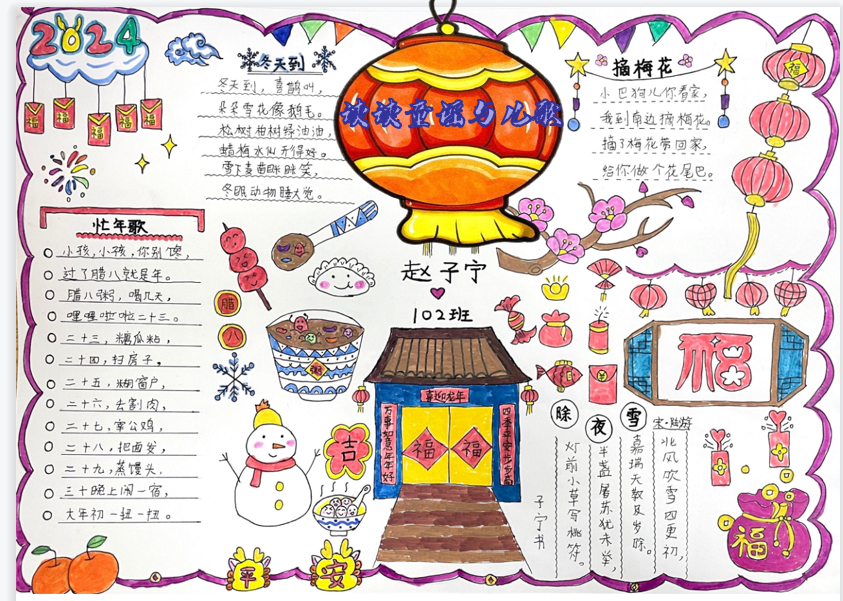 2024
福
福
福
福
福
冬天到
冬天到，喜鹊叫，
朵朵雪花像鹅毛。
松树柏树绿油油，
蜡梅水仙开得好。
雪下麦苗眯眯笑，
冬眠动物睡大觉。
读读童谣与儿歌
摘梅花
小巴狗儿你看家，
我到南边摘梅花。
摘了梅花带回家，
给你做个花尾巴。
福
忙年歌
小孩，小孩，你别馋，
过了腊八就是年。
腊八粥，喝几天，
哩哩啦啦二十三。
二十三，糖瓜粘，
二十四，扫房子。
二十五，糊窗户，
二十六，去割肉，
二十七，宰公鸡，
二十八，把面发，
二十九，蒸馒头，
三十晚上闹一宿，
大年初一扭一扭。
腊
八
粥
赵子宁
102班
喜迎龙年
万事如意年年好
四季平安步步高
福
福
吉
平
安
福
除夜雪
宋·陆游
北风吹雪四更初，
嘉瑞天教及岁除。
半盏屠苏犹未举，
灯前小草写桃符。
子宁书
福